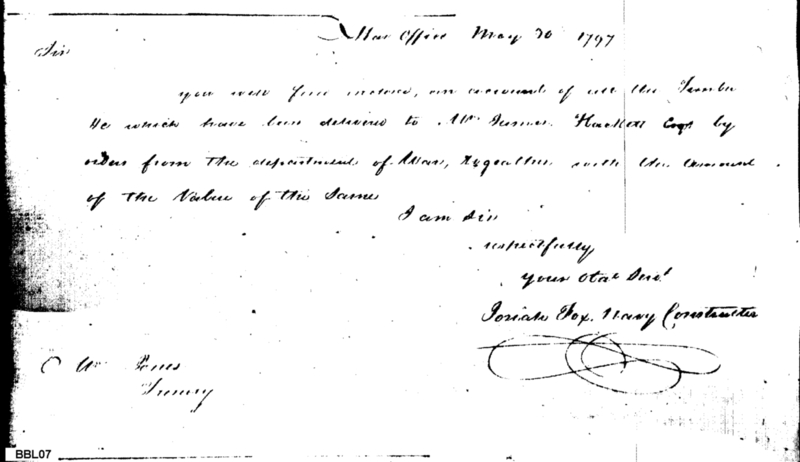 War Office May 30 1797
Sir
you will find inclosed, an account of all the Timber
&c which have been delivered to Mr James Hackett Capt by
orders from the department of War, together with the amount
of the Value of the Same
I am Sir
respectfully
your Obt Servt
Josiah Fox. Navy Constructor
Mr
BBL07